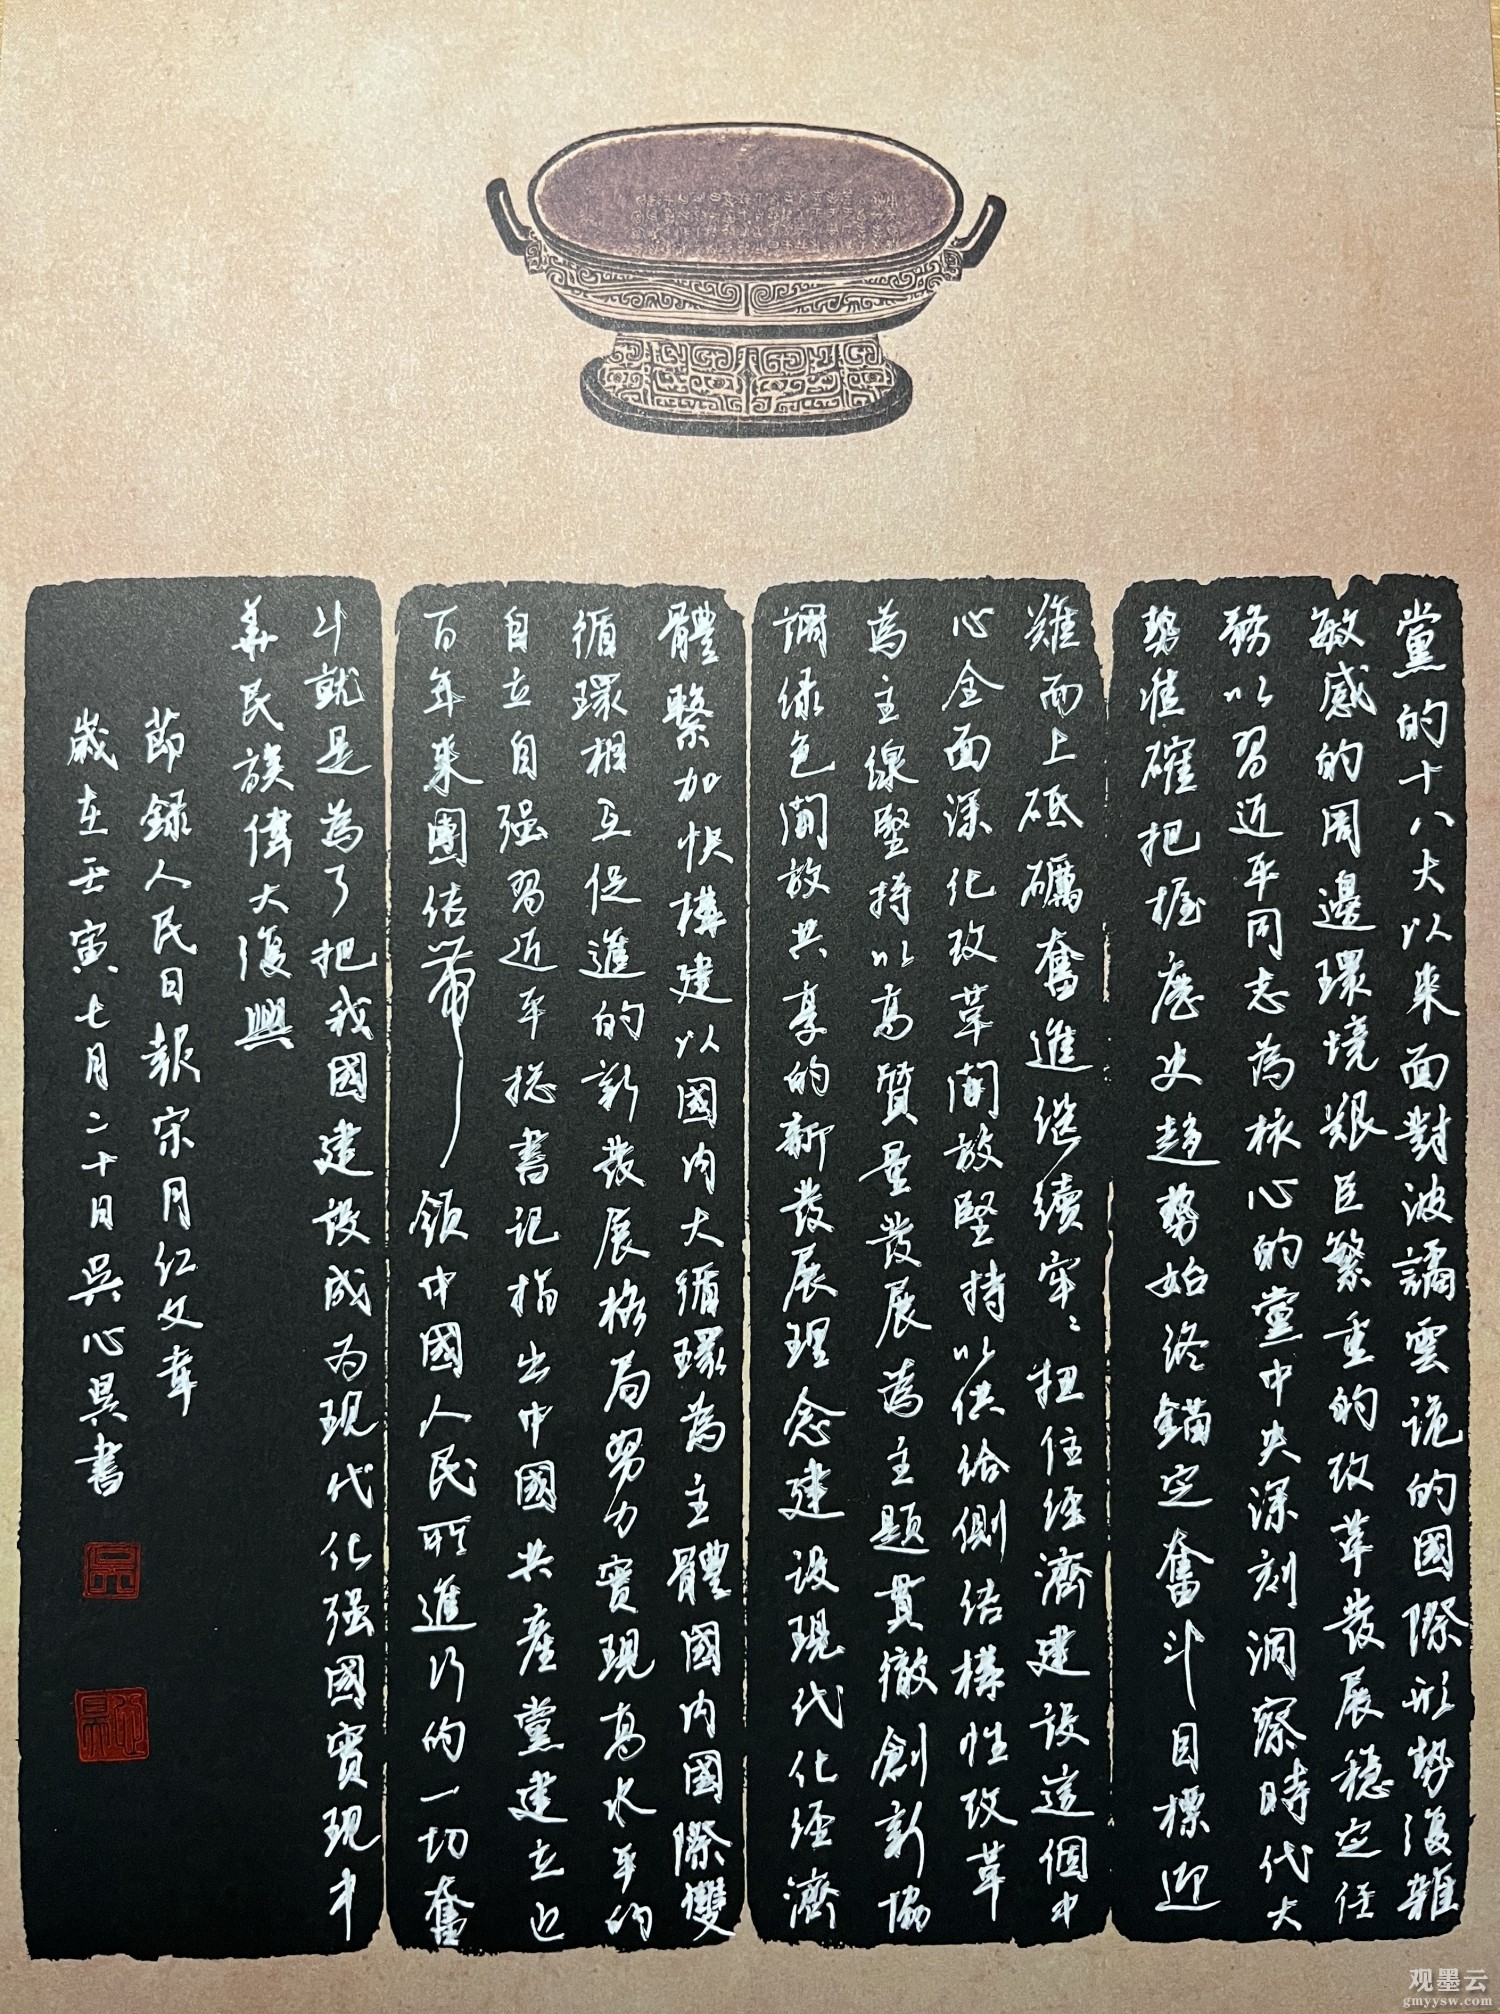 黨的十八大以来面對波譎雲诡的國際形势復雜
敏感的周邊環境艰巨繁重的改革發展穩定任
務以習近平同志為核心的黨中央深刻洞察時代大
势准確把握歷史趋勢始终錨定奮斗目標迎
難而上砥礪奮進继續牢牢扭住经濟建设這個中
心全面深化改革開放堅持以供给側结構性改革
為主線堅持以高質量發展為主題貫徹創新協
調绿色開放共享的新發展理念建设現代化经濟
體繫加快構建以國内大循環為主體國内國際雙
循環相互促進的新發展格局努力實現高水平的
自立自强習近平總書记指出中國共産黨建立近
百年来團结帶領中國人民所進行的一切奮
斗就是為了把我國建设成为現代化强國實現中
華民族偉大復興
節録人民日報宗月红文章
歲在壬寅七月二十日吴心昊書
观墨云
gmyysw.com